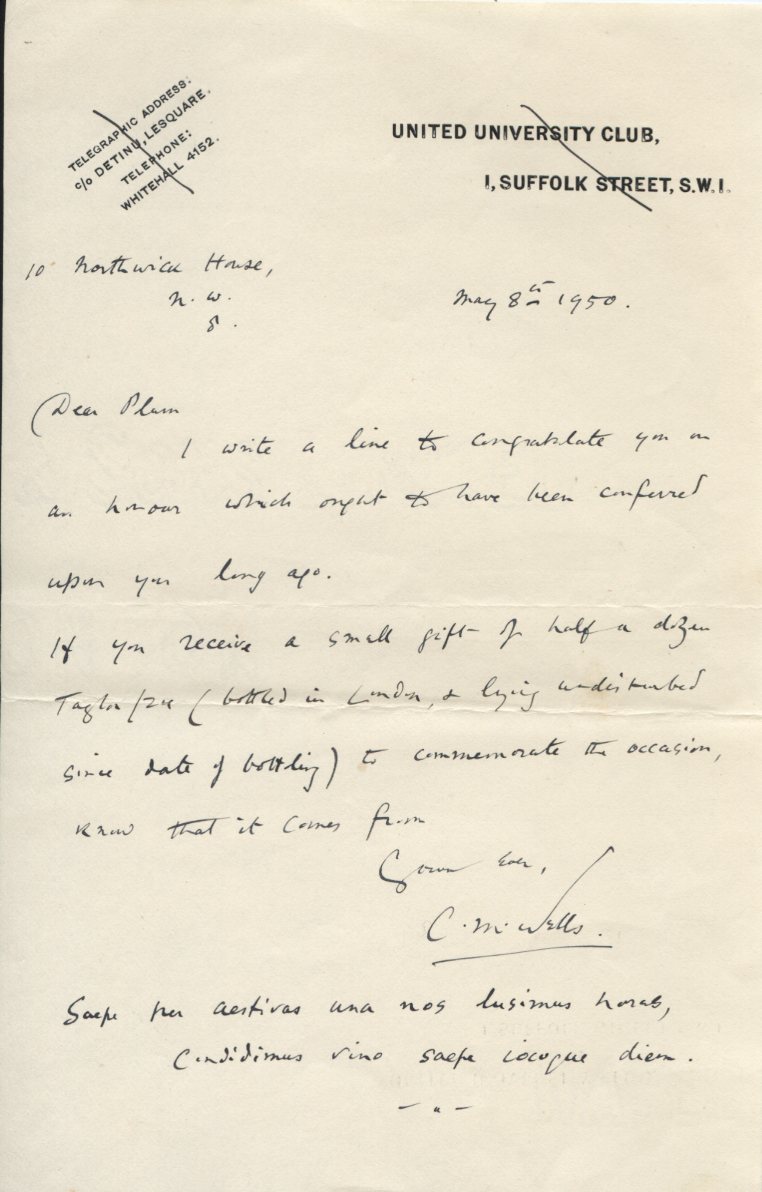 TELEGRAPHIC ADDRESS:
c/o DETINU, LESQUARE.
TELEPHONE:
WHITEHALL 4152.
UNITED UNIVERSITY CLUB,
1, SUFFOLK STREET, S.W.1.
10 Northwick House,
N.W.
8.
May 8th 1950.
Dear Plum
I write a line to congratulate you on
an honour which ought to have been conferred
upon you long ago.
If you receive a small gift of half a dozen
Taylor (bottled in London, & lying undisturbed
since date of bottling) to commemorate the occasion,
know that it comes from
Yours ever,
C. M. Wells.
Saepe per aestivas una nos lusimus horas,
Condidimus vino saepe iocoque diem.